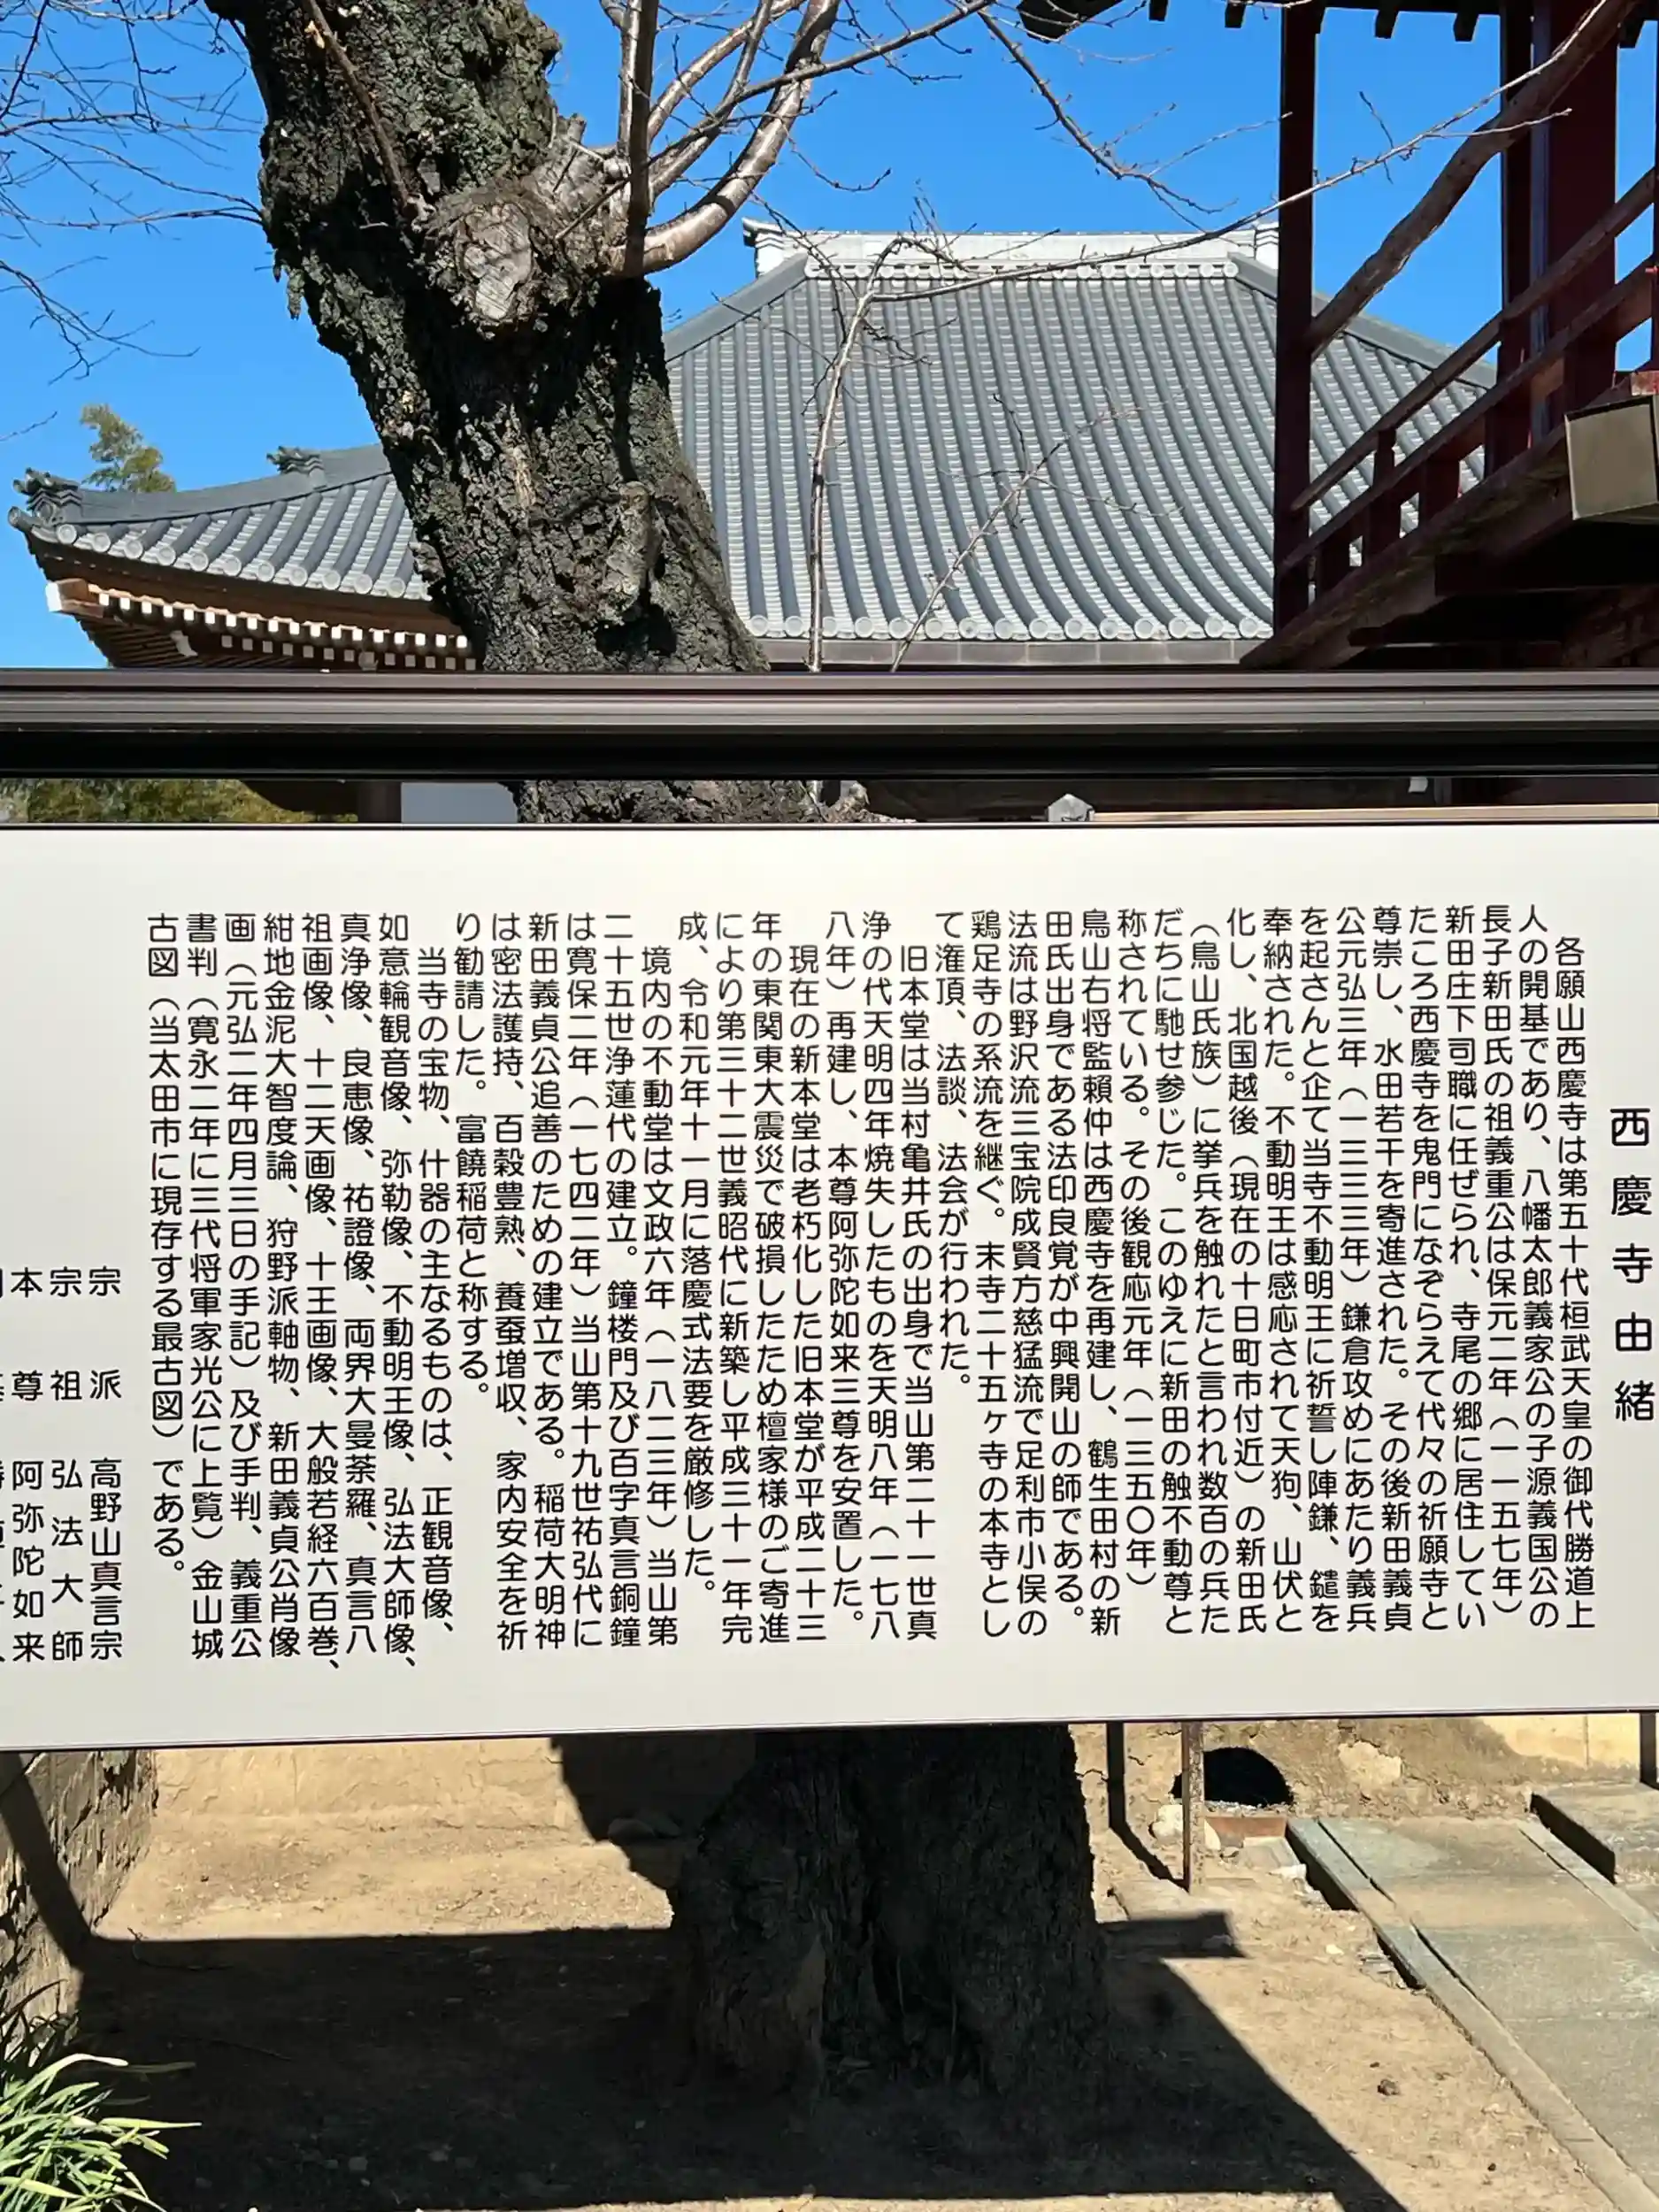 西慶寺由緒
各願山西慶寺は第五十代桓武天皇の御代勝道上
人の開基であり、八幡太郎義家公の子源義国公の
長子新田氏の祖義重公は保元二年（一一五七年）
新田庄下司職に任ぜられ、寺尾の郷に居住してい
たころ西慶寺を鬼門になぞらえて代々の祈願寺と
尊崇し、水田若干を寄進された。その後新田義貞
公元弘三年（一三三三年）鎌倉攻めにあたり義兵
を起さんと企て当寺不動明王に祈誓し陣鎌、鑓を
奉納された。不動明王は感応されて天狗、山伏と
化し、北国越後（現在の十日町市付近）の新田氏
（鳥山氏族）に挙兵を触れたと言われ数百の兵た
だちに馳せ参じた。このゆえに新田の触不動尊と
称されている。その後観応元年（一三五〇年）
鳥山右将監頼仲は西慶寺を再建し、鶴生田村の新
田氏出身である法印良覚が中興開山の師である。
法流は野沢流三宝院成賢方慈猛流で足利市小俣の
鶏足寺の系流を継ぐ。末寺二十五ヶ寺の本寺とし
て潅頂、法談、法会が行われた。
旧本堂は当村亀井氏の出身で当山第二十一世真
浄の代天明四年焼失したものを天明八年（一七八
八年）再建し、本尊阿弥陀如来三尊を安置した。
現在の新本堂は老朽化した旧本堂が平成二十三
年の東関東大震災で破損したため檀家様のご寄進
により第三十二世義昭代に新築し平成三十一年完
成、令和元年十一月に落慶式法要を厳修した。
境内の不動堂は文政六年（一八二三年）当山第
二十五世浄蓮代の建立。鐘楼門及び百字真言銅鐘
は寛保二年（一七四二年）当山第十九世祐弘代に
新田義貞公追善のための建立である。稲荷大明神
は密法護持、百穀豊熟、養蚕増収、家内安全を祈
り勧請した。富饒稲荷と称する。
当寺の宝物、什器の主なるものは、正観音像、
如意輪観音像、弥勒像、不動明王像、弘法大師像、
真浄像、良恵像、祐證像、両界大曼荼羅、真言八
祖画像、十二天画像、十王画像、大般若経六百巻、
紺地金泥大智度論、狩野派軸物、新田義貞公肖像
画（元弘二年四月三日の手記）及び手判、義重公
書判（寛永二年に三代将軍家光公に上覧）金山城
古図（当太田市に現存する最古図）である。
宗派 高野山真言宗
宗祖 弘法大師
本尊 阿弥陀如来